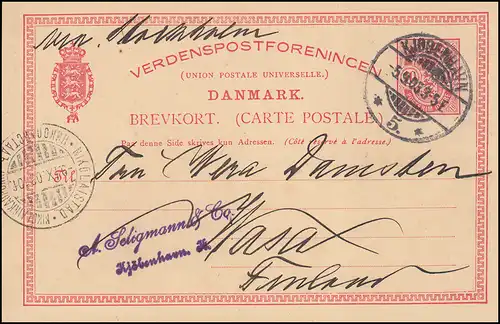 via Stockholm
VERDENSPOSTFORENINGEN
(UNION POSTALE UNIVERSELLE.)
DANMARK.
BREVKORT. (CARTE POSTALE)
Paa denne Side skrives kun Adressen. (Côté réservé à l'adresse.)
KJØBENHAVN
* 5. *
NIKOLAISTAD
Wera Damsten
A. Seligmann & Co.
Kjöbenhavn. K.
Wasa
Finland